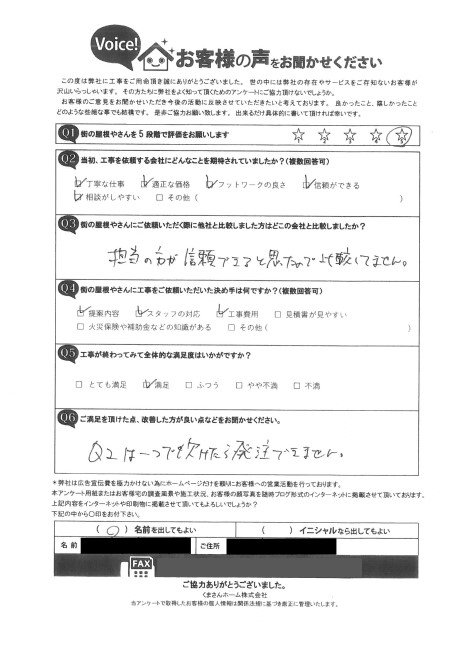 Voice!
お客様の声をお聞かせください
この度は弊社に工事をご用命頂き誠にありがとうございました。世の中には弊社の存在やサービスをご存知ないお客様が
沢山いらっしゃいます。その方たちに弊社をよく知って頂くためのアンケートにご協力頂けないでしょうか。
お客様のご意見をお聞かせいただき今後の活動に反映させていただきたいと考えております。良かったこと、嬉しかったこと
どのような些細な事でも結構です。是非ご協力お願い致します。出来るだけ具体的に書いて頂ければ幸いです。
Q1 街の屋根やさんを5段階で評価をお願いします ☆ ☆ ☆ ☆ ☆
Q2 当初、工事を依頼する会社にどんなことを期待されていましたか?(複数回答可)
☑丁寧な仕事 ☑適正な価格 ☑フットワークの良さ ☑信頼ができる
☑相談がしやすい □その他( )
Q3 街の屋根やさんにご依頼いただく際に他社と比較しました方はどこの会社と比較しましたか?
担当の方が信頼できると思たので比較してません。
Q4 街の屋根やさんに工事をご依頼いただいた決め手は何ですか?(複数回答可)
☑提案内容 ☑スタッフの対応 ☑工事費用 □見積書が見やすい
□火災保険や補助金などの知識がある □その他( )
Q5 工事が終わってみて全体的な満足度はいかがですか?
□とても満足 ☑満足 □ふつう □やや不満 □不満
Q6 ご満足を頂けた点、改善した方が良い点などをお聞かせください。
Q2は一つでも欠けたら発注できません。
*弊社は広告宣伝費を極力かけない為にホームページだけを頼りにお客様への営業活動を行っております。
本アンケート用紙またはお客様宅の調査風景や施工状況、お客様の顔写真を随時ブログ形式のインターネットに掲載させて頂いております。
上記内容をインターネットや印刷物に掲載させて頂いてもよろしいでしょうか?
下記の中から〇印をお付下さい。
(〇)名前を出してもよい ( )イニシャルなら出してもよい
名前 ご住所
FAX
ご協力ありがとうございました。
くまさんホーム株式会社
※アンケートで取得したお客様の個人情報は関係法規に基づき厳正に管理いたします。